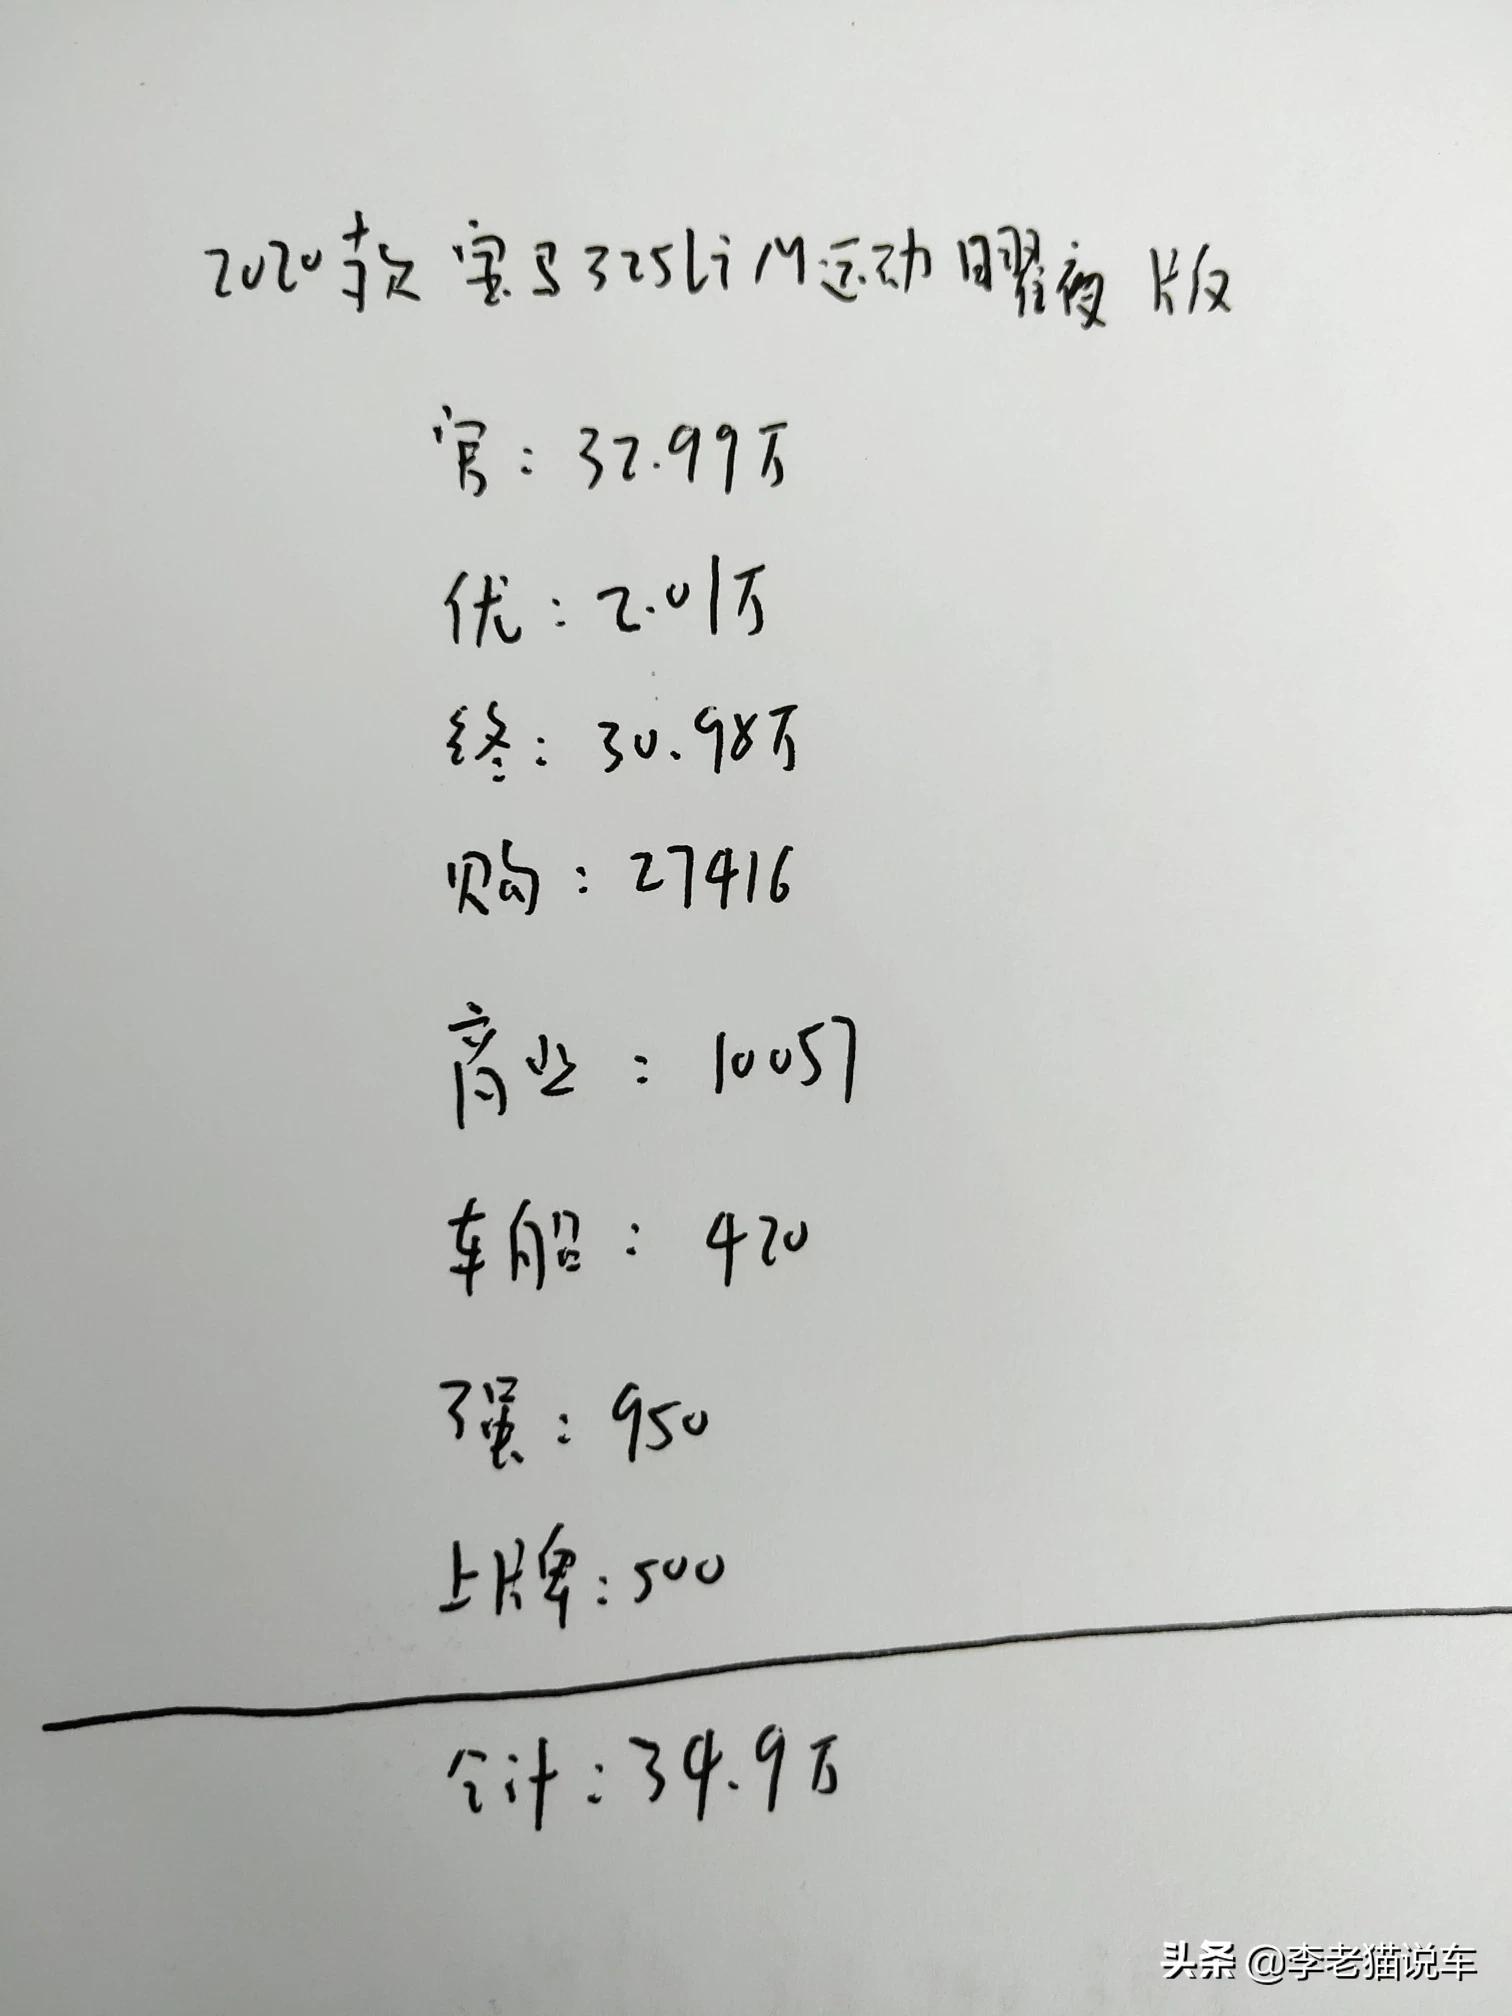 2020款宝马325Li M运动曜夜版
官：32.99万
优：2.01万
终：30.98万
购：27416
商业：10057
车船：420
强：950
上牌：500
合计：34.9万
头条 @李老猫说车